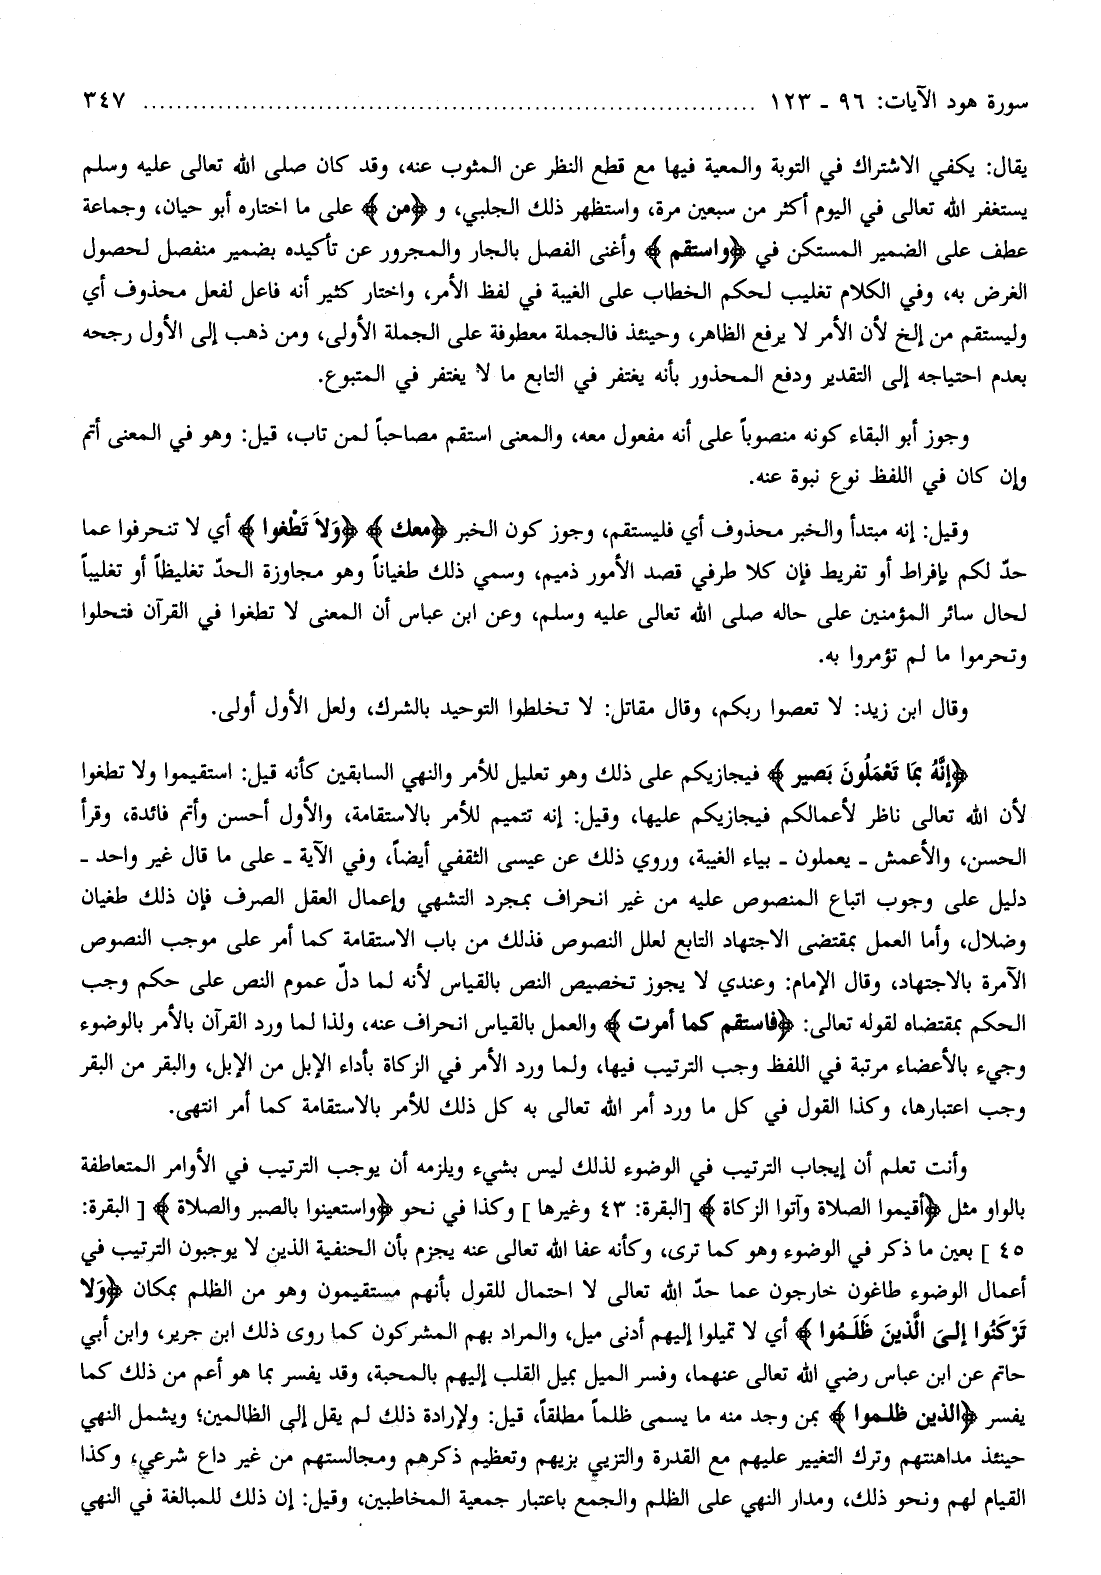 سورة هود الآيات: ٩٦ ـ ١٢٣ ........................................................................... ٣٤٧
يقال: يكفي الاشتراك في التوبة والمعية فيها مع قطع النظر عن المثوب عنه، وقد كان صلى الله تعالى عليه وسلم
يستغفر الله تعالى في اليوم أكثر من سبعين مرة، واستظهر ذلك الجلبي، و ﴿من﴾ على ما اختاره أبو حيان، وجماعة
عطف على الضمير المستكن في ﴿واستقم﴾ وأغنى الفصل بالجار والمجرور عن تأكيده بضمير منفصل لحصول
الغرض به، وفي الكلام تغليب لحكم الخطاب على الغيبة في لفظ الأمر، واختار كثير أنه فاعل لفعل محذوف أي
وليستقم من إلخ لأن الأمر لا يرفع الظاهر، وحينئذ فالجملة معطوفة على الجملة الأولى، ومن ذهب إلى الأول رجحه
بعدم احتياجه إلى التقدير ودفع المحذور بأنه يغتفر في التابع ما لا يغتفر في المتبوع.
وجوز أبو البقاء كونه منصوباً على أنه مفعول معه، والمعنى استقم مصاحباً لمن تاب، قيل: وهو في المعنى أتم
وإن كان في اللفظ نوع نبوة عنه.
وقيل: إنه مبتدأ والخبر محذوف أي فليستقم، وجوز كون الخبر ﴿معك﴾ ﴿وَلاَ تَطْغوا﴾ أي لا تنحرفوا عما
حدّ لكم بإفراط أو تفريط فإن كلا طرفي قصد الأمور ذميم، وسمي ذلك طغياناً وهو مجاوزة الحدّ تغليظاً أو تغليباً
لحال سائر المؤمنين على حاله صلى الله تعالى عليه وسلم، وعن ابن عباس أن المعنى لا تطغوا في القرآن فتحلوا
وتحرموا ما لم تؤمروا به.
وقال ابن زيد: لا تعصوا ربكم، وقال مقاتل: لا تخلطوا التوحيد بالشرك، ولعل الأول أولى.
﴿إنَّهُ بمَا تَعْمَلُونَ بَصير﴾ فيجازيكم على ذلك وهو تعليل للأمر والنهي السابقين كأنه قيل: استقيموا ولا تطغوا
لأن الله تعالى ناظر لأعمالكم فيجازيكم عليها، وقيل: إنه تتميم للأمر بالاستقامة، والأول أحسن وأتم فائدة، وقرأ
الحسن، والأعمش ـ يعملون ـ بياء الغيبة، وروي ذلك عن عيسى الثقفي أيضاً، وفي الآية ـ على ما قال غير واحد ـ
دليل على وجوب اتباع المنصوص عليه من غير انحراف بمجرد التشهي وإعمال العقل الصرف فإن ذلك طغيان
وضلال، وأما العمل بمقتضى الاجتهاد التابع لعلل النصوص فذلك من باب الاستقامة كما أمر على موجب النصوص
الآمرة بالاجتهاد، وقال الإمام: وعندي لا يجوز تخصيص النص بالقياس لأنه لما دلّ عموم النص على حكم وجب
الحكم بمقتضاه لقوله تعالى: ﴿فاستقم كما أمرت﴾ والعمل بالقياس انحراف عنه، ولذا لما ورد القرآن بالأمر بالوضوء
وجيء بالأعضاء مرتبة في اللفظ وجب الترتيب فيها، ولما ورد الأمر في الزكاة بأداء الإبل من الإبل، والبقر من البقر
وجب اعتبارها، وكذا القول في كل ما ورد أمر الله تعالى به كل ذلك للأمر بالاستقامة كما أمر انتهى.
وأنت تعلم أن إيجاب الترتيب في الوضوء لذلك ليس بشيء ويلزمه أن يوجب الترتيب في الأوامر المتعاطفة
بالواو مثل ﴿أقيموا الصلاة وآتوا الزكاة﴾ [البقرة: ٤٣ وغيرها ] وكذا في نحو ﴿واستعينوا بالصبر والصلاة﴾ [ البقرة:
٤٥ ] بعين ما ذكر في الوضوء وهو كما ترى، وكأنه عفا الله تعالى عنه يجزم بأن الحنفية الذين لا يوجبون الترتيب في
أعمال الوضوء طاغون خارجون عما حدّ الله تعالى لا احتمال للقول بأنهم مستقيمون وهو من الظلم بمكان ﴿وَلا
تَرْكَنُوا إلىَ الَّذينَ ظَلَمُوا﴾ أي لا تميلوا إليهم أدنى ميل، والمراد بهم المشركون كما روى ذلك ابن جرير، وابن أبي
حاتم عن ابن عباس رضي الله تعالى عنهما، وفسر الميل بميل القلب إليهم بالمحبة، وقد يفسر بما هو أعم من ذلك كما
يفسر ﴿الذين ظلموا﴾ بمن وجد منه ما يسمى ظلماً مطلقاً، قيل: ولإرادة ذلك لم يقل إلى الظالمين؛ ويشمل النهي
حينئذ مداهنتهم وترك التغيير عليهم مع القدرة والتزيي بزيهم وتعظيم ذكرهم ومجالستهم من غير داع شرعي، وكذا
القيام لهم ونحو ذلك، ومدار النهي على الظلم والجمع باعتبار جمعية المخاطبين، وقيل: إن ذلك للمبالغة في النهي